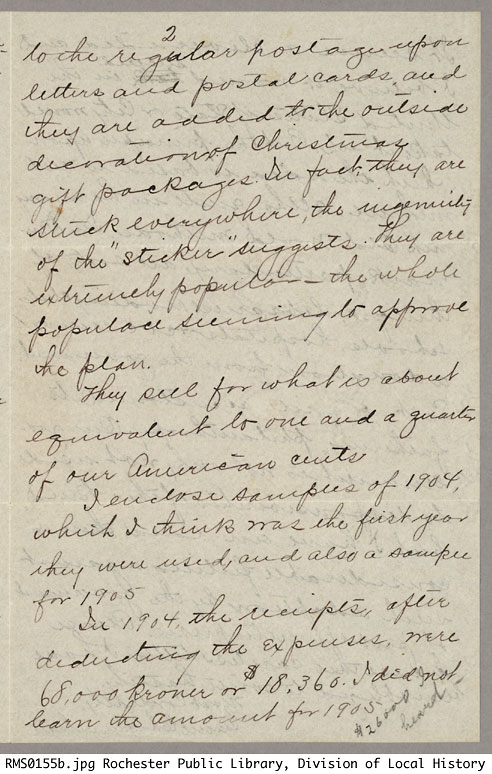 2
to the regular postage upon
letters and postal cards, and
they are added to the outside
decoration of Christmas
gift packages. In fact, they are
stuck everywhere, the ingenuity
of the "sticker" suggests. They are
extremely popular – the whole
populace seeming to approve
the plan.
They sell for what is about
equivalent to one and a quarter
of our American cents
I enclose samples of 1904,
which I think was the first year
they were used, and also a sample
for 1905
In 1904, the receipts, after
deducting the expenses, were
68,000 kroner or $18,360. I did not
learn the amount for 1905
$26000 I
heard
RMS0155b.jpg Rochester Public Library, Division of Local History